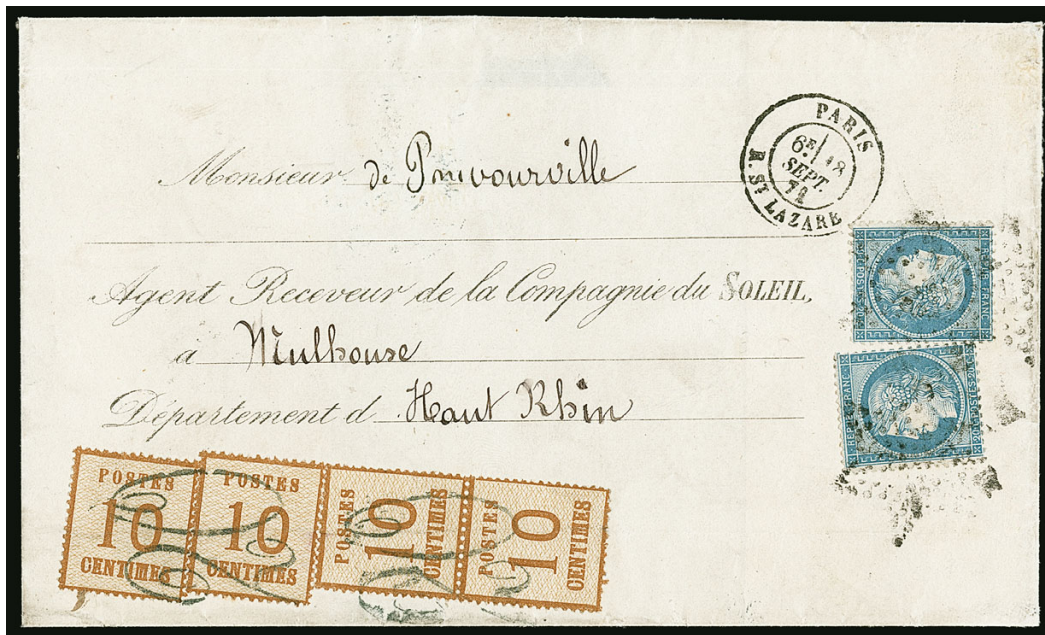 PARIS
6E 18
SEPT.
71
R. ST LAZARE
Monsieur de Prevourville
Agent Receveur de la Compagnie du SOLEIL,
à Mulhouse
Département d Haut Rhin
REPUB. FRANC.
REPUB. FRANC.
POSTES
10
CENTIMES
POSTES
10
CENTIMES
POSTES
10
CENTIMES
POSTES
10
CENTIMES